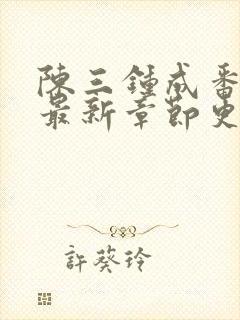 陳三鍾成番
最新章節史
許葵玲